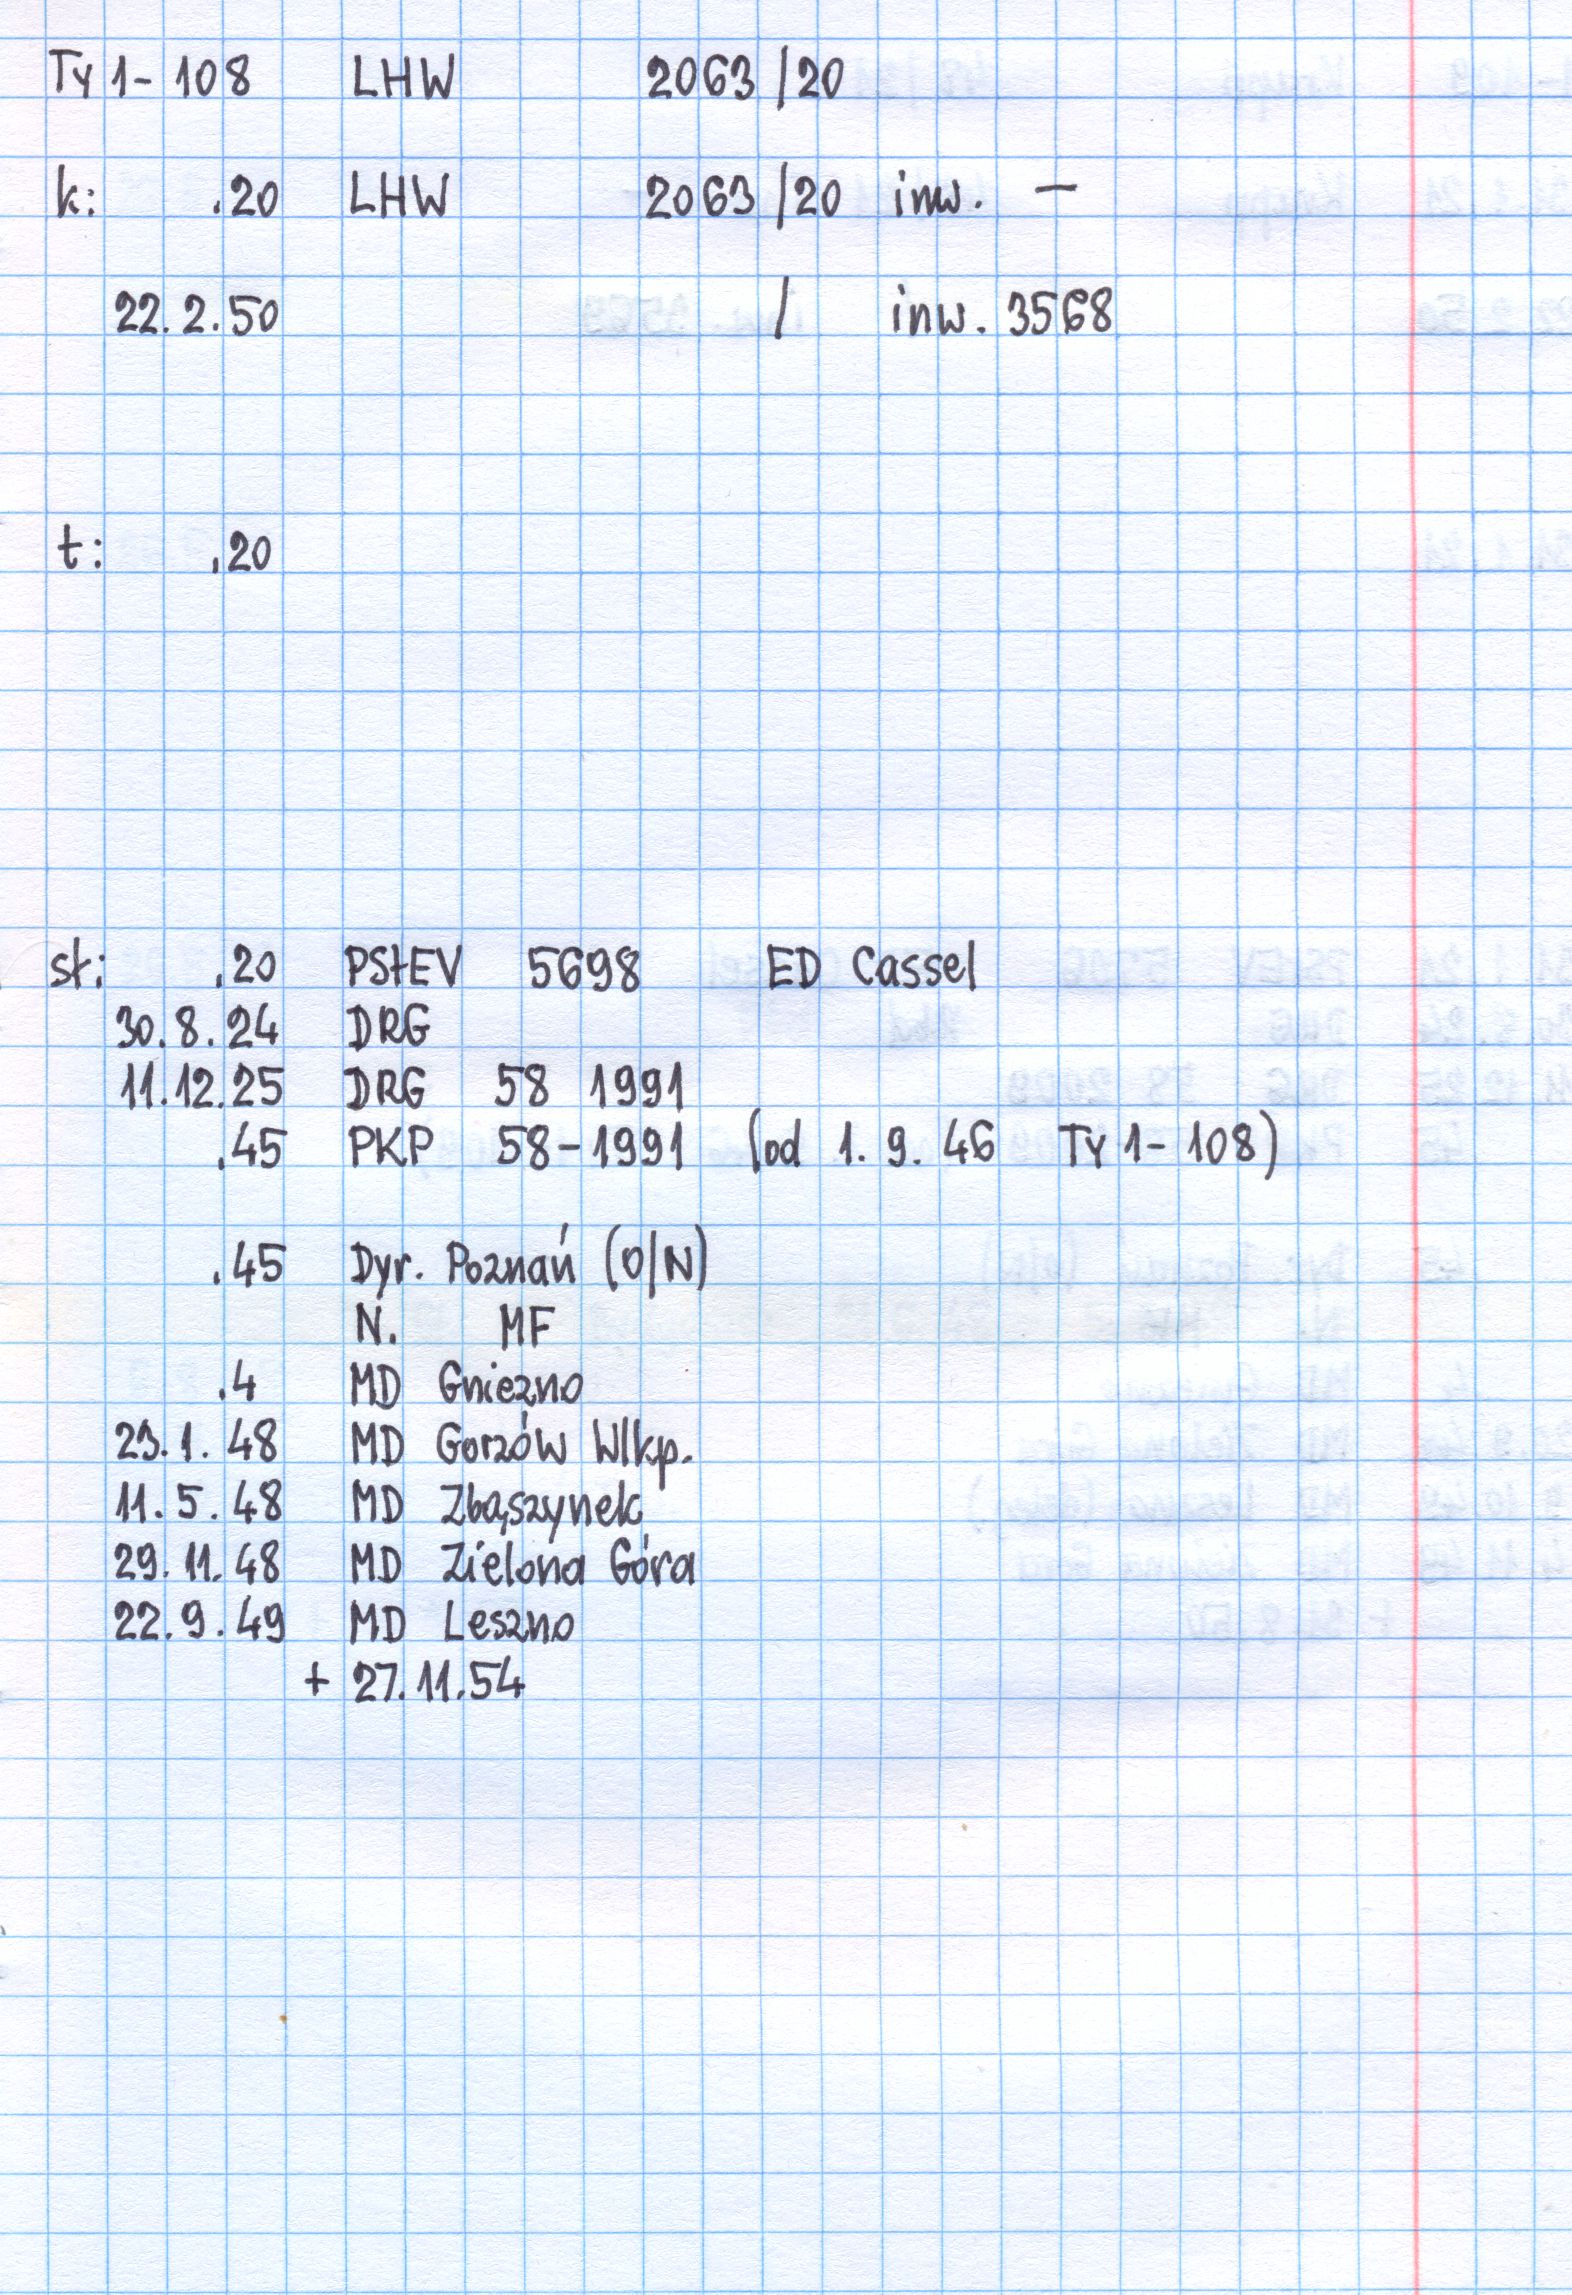 Ty 1-108 LHW 2063/20
k: .20 LHW 2063/20 inw. —
22.2.50 / inw. 3568
t: .20
st: .20 PStEV 5698 ED Cassel
30.8.24 DRG
11.12.25 DRG 58 1991
.45 PKP 58-1991 (od 1.9.46 Ty 1-108)
.45 Dyr. Poznań (O/N)
N. MF
.4 MD Gniezno
23.1.48 MD Gorzów Wlkp.
11.5.48 MD Zbąszynek
29.11.48 MD Zielona Góra
22.9.49 MD Leszno
+ 27.11.54